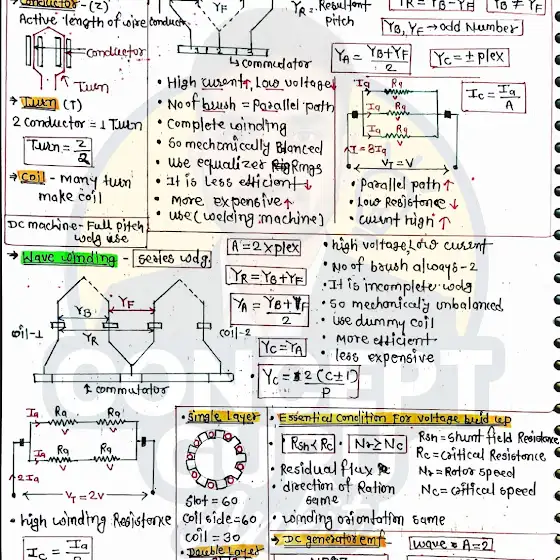 → Conductor - (Z)
Active length of wire conductr
Conductor
Turn
→ Turn (T)
2 conductor = 1 Turn
Turn = Z/2
→ Coil - many turn
make coil
DC machine - Full pitch
wdg use
Y_F
commutator
• High current↑, Low voltage↓
• No of brush = Parallel path
• Complete winding
• So mechanically Blanced
• use equalizer Rings
• It is Less efficient↓
• More expensive↑
• use (welding machine)
Y_R : Resultent
pitch
Y_R = Y_B - Y_F
Y_B ≠ Y_F
Y_B, Y_F → odd Number
Y_A = Y_B + Y_F / 2
Y_C = ± plex
Ia Ra
V
Ia Ra
V
Ia Ra
V
I_C = Ia / A
V_T = V
• Parallel path↑
• Low Resistence↓
• current high↑
→ Wave winding - series wdg
Y_B
Y_F
Y_R
coil-1
coil-2
commutator
A = 2 x plex
Y_R = Y_B + Y_F
Y_A = Y_B + Y_F / 2
Y_C = Y_A
• Y_C = 2 (C ± 1) / P
• high voltage, Low current
• No of brush always - 2
• It is incomplete wdg
• so mechanically unbalanced
• use dummy coil
• More efficient
• less expensive
CONCEPT
Ia Ra Ra
V V
Ia Ra Ra
V V
2Ia
V_T = 2V
• high winding Resistence
I_C = Ia
• Single Layer
slot = 60
coil side = 60
coil = 30
• Double Layer
• Essential Condition For voltage build up
• Rsh < Rc • Nr ≥ Nc
• Residual flux
• direction of Ration
same
• winding orientation same
Rsh = shunt field Resistance
Rc = critical Resistance
Nr = Rotor speed
Nc = critical speed
→ DC generator emf
wave = A = 2